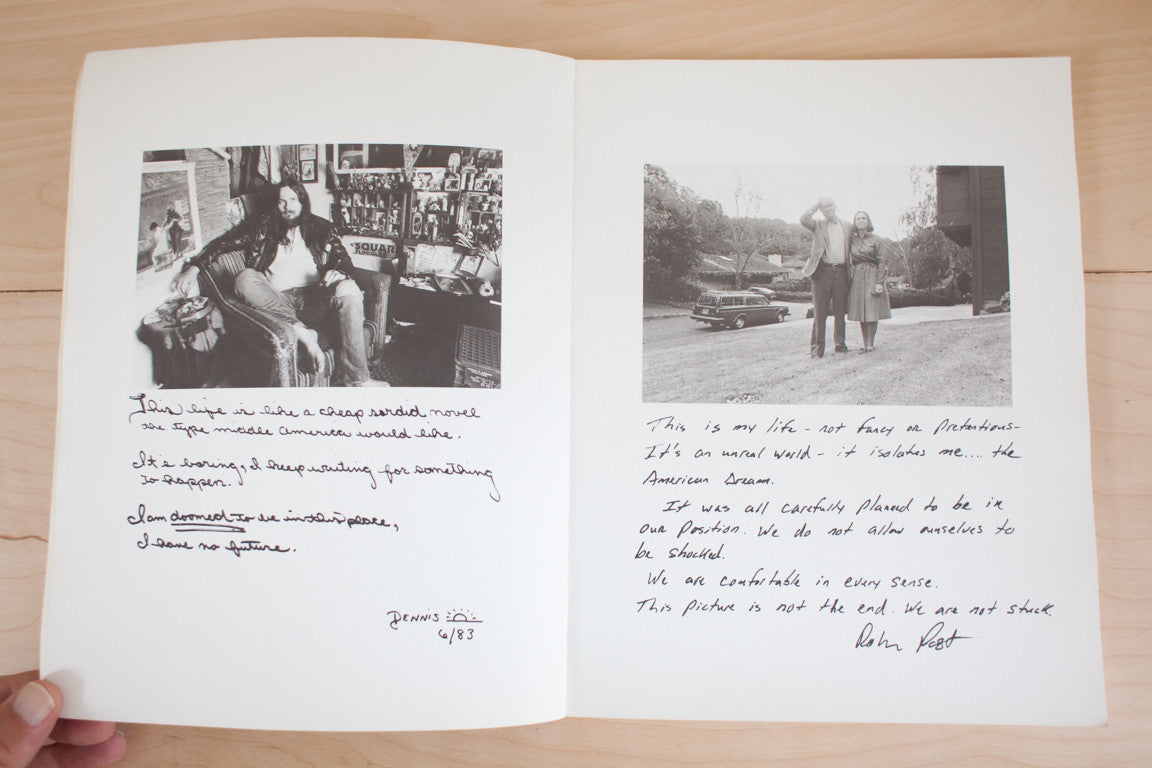 SQUAR
This life is like a cheap sordid novel
the type middle America would like.
It's boring, I keep writing for something
to happen.
I am doomed to be in this place,
I have no future.
DENNIS
6/83
This is my life - not fancy or pretentious -
It's an unreal world - it isolates me.... the
American Dream.
It was all carefully planned to be in
our position. We do not allow ourselves to
be shocked.
We are comfortable in every sense.
This picture is not the end. We are not stuck.